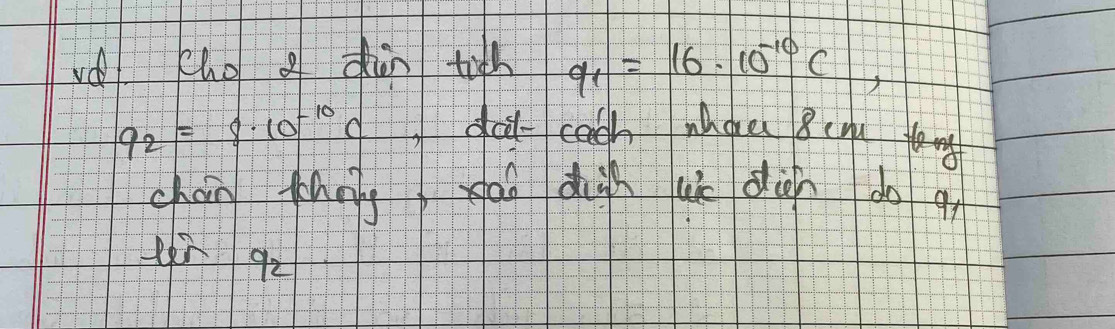 vd. Cho 2 điện tích q₁ = 16 . 10⁻¹⁰ C ,
q₂ = 8.10⁻¹⁰ C , đặt cách nhau 8 cm trong
chân không , xác định lực điện do q₁
lên q₂